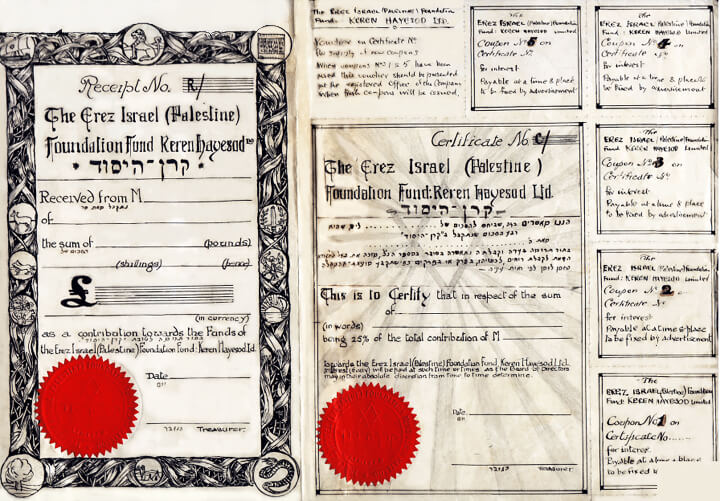 Receipt No. R/
The Erez Israel (Palestine)
Foundation Fund Keren Hayesod Ltd
קרן-היסוד
Received from M
נתקבל מאת מר
of
the sum of (pounds)
הסכום של
(shillings) (pence)
£
(in currency)
as a contribution towards the Funds of
the Erez Israel (Palestine) Foundation Fund: Keren Hayesod Ltd.
Date
יום
גזבר Treasurer
The Erez Israel (Palestine) Foundation
Fund: Keren Hayesod Ltd.
Voucher on Certificate No
for supply of new coupons
When coupons Nos 1 to 5 have been
used this voucher should be presented
at the registered Office of the Company
when fresh coupons will be issued.
Certificate No. C/
The Erez Israel (Palestine)
Foundation Fund: Keren Hayesod Ltd.
קרן-היסוד
This is to Certify that in respect of the sum
of
(in words)
being 25% of the total contribution of M
towards the Erez Israel (Palestine) Foundation Fund Keren Hayesod Ltd.
interest (if any) will be paid at such time or times as the Board of Directors
may in their absolute discretion from time to time determine.
Date
יום
גזבר Treasurer
The
Erez Israel (Palestine) Foundation
Fund: Keren Hayesod Limited
Coupon No 5 on
Certificate No
for interest
Payable at a time & place
to be fixed by advertisement
The
Erez Israel (Palestine) Foundation
Fund: Keren Hayesod Limited
Coupon No 4 on
Certificate No
for interest
Payable at a time & place
to be fixed by advertisement
The
Erez Israel (Palestine) Foundation
Fund Keren Hayesod Limited
Coupon No 3 on
Certificate No
for interest
Payable at a time & place
to be fixed by advertisement
The
Erez Israel (Palestine) Foundation
Fund: Keren Hayesod Limited
Coupon No 2 on
Certificate No
for interest
Payable at a time & place
to be fixed by advertisement
The
Erez Israel (Palestine) Foundation
Fund: Keren Hayesod Limited
Coupon No 1 on
Certificate No......
for interest
Payable at a time & place
to be fixed